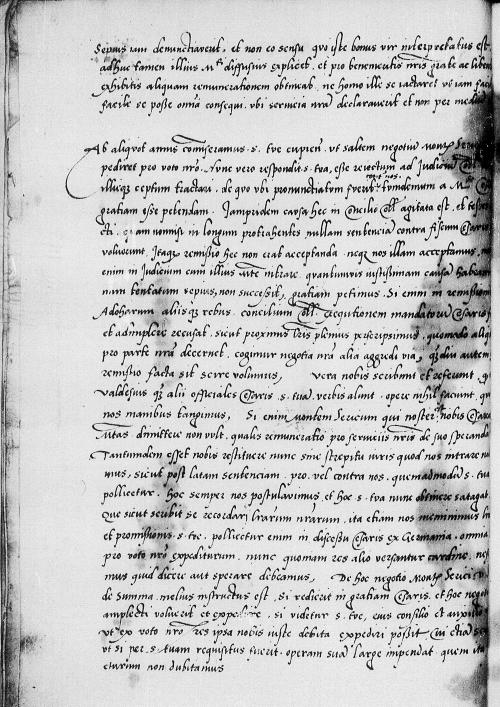 Sepius iam denunctiaverit, et non co sensu quo iste bonus vir interpretatus est
adhuc tamen illius M.tis diffusius explicet, et pro benemeritis nris grate ac liben
exhibitis aliquam remunerationem obtineat, ne homo ille se iactaret ut iam fac
facile se posse omnia consequi, ubi servicia nra declaraverit et non per medi
Ab aliquot annis comiseramus .s. tue cupien. ut saltem negotiu mont. Seric
pediret pro voto nro. Nunc vero respondit .s. tua, esse reiectum ad Judiciu Coll
illicq3 ceptum tractari, de quo ubi pronunctiatum fuerit contra nos, eundem a M.
gratiam esse petendam. Jampridem causa hec in Concilio Coll. agitata est, et
cti, quam nonnisi in longum protrahentes nullam sentencia contra fiscum Cesaris
voluerunt. Itaq3 remissio hec non erat acceptanda neq3 nos illam acceptamus, n
enim in Judicium cum illius M.te intrare, quantumvis iustissimam causa habea
nam tentatum sepius, non successit, gratiam petimus. Si enim in remissiom
Adoharum aliisq3 rebus, concilium Coll. exequtionem mandatoru Cesaris
et adimplere recusat, sicut proximis lris plenius perscripsimus, quomodo aliq
pro parte nra decernet, cogimur negotia nra alia aggredi via, q3diu autem
remissio facta sit scire volumus, Vera nobis scribunt et referunt, q
Valdesius q3 alii officiales Cesaris, s. tua verbis aliunt, opere nihil faciunt, qu
nos manibus tangimus, Si enim montem Sericum qui noster est nobis Cesarea
M.tas dimittere non vult, qualis remuneratio pro serviciis nris de suo speranda
Tantumdem esset nobis restituere nunc sine strepitu iuris quod nos intrare ne
mus, sicut post latam sentenciam, pro, vel contra nos, quemadmodu .s. tua
pollicetur. Hoc semper nos postulavimus, et hoc .s. tua nunc obtinere satagat
Que sicut scribit se recordari lrarum nrarum, ita etiam nos meminimus l
et promissionis .s. tue, pollicetur enim in discessu Cesaris ex Germania, omnia
pro voto nro expediturum, nunc quoniam res alio versantur cardine, ne
mus quid dicere aut sperare debeamus, De hoc negotio Montis Serici
de Summa melius instructus est, si redierit in gratiam Cesaris, et hoc nego
amplecti voluerit et expedire, si videtur .s. tue, eius consilio et auxilio
ut ex voto nro res ipsa nobis iuste debita expediri possit, cui etiam s
ut si per .s. tuam requisitus fuerit, operam sua large impendat, quem ita
eturum non dubitamus